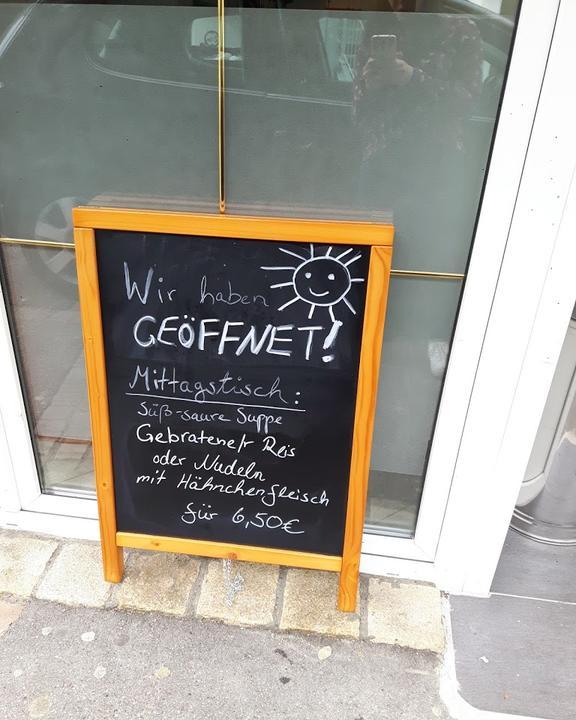 Wir haben
GEÖFFNET!
Mittagstisch:
Süß-saure Suppe
Gebratene/r Reis
oder Nudeln
mit Hähnchenfleisch
für 6,50€